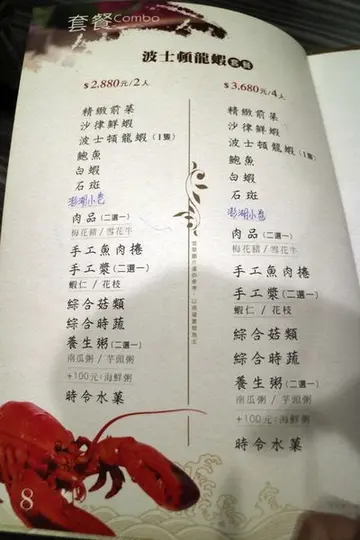 套餐Combo
波士頓龍蝦套餐
$2.880元/2人
精緻前菜
沙律鮮蝦
波士頓龍蝦(1隻)
鮑魚
白蝦
石斑
澎湖小卷
肉品(二選一)
梅花豬/雪花牛
手工魚肉捲
手工漿(二選一)
蝦仁/花枝
綜合菇類
綜合時蔬
養生粥(二選一)
南瓜粥/芋頭粥
+100元:海鮮粥
時令水菓
$3,680元/4人
精緻前菜
沙律鮮蝦
波士頓龍蝦(1隻)
鮑魚
白蝦
石斑
澎湖小卷
肉品(二選一)
梅花豬/雪花牛
手工魚肉捲
手工漿(二選一)
蝦仁/花枝
綜合菇類
綜合時蔬
養生粥(二選一)
南瓜粥/芋頭粥
+100元:海鮮粥
時令水菓
8